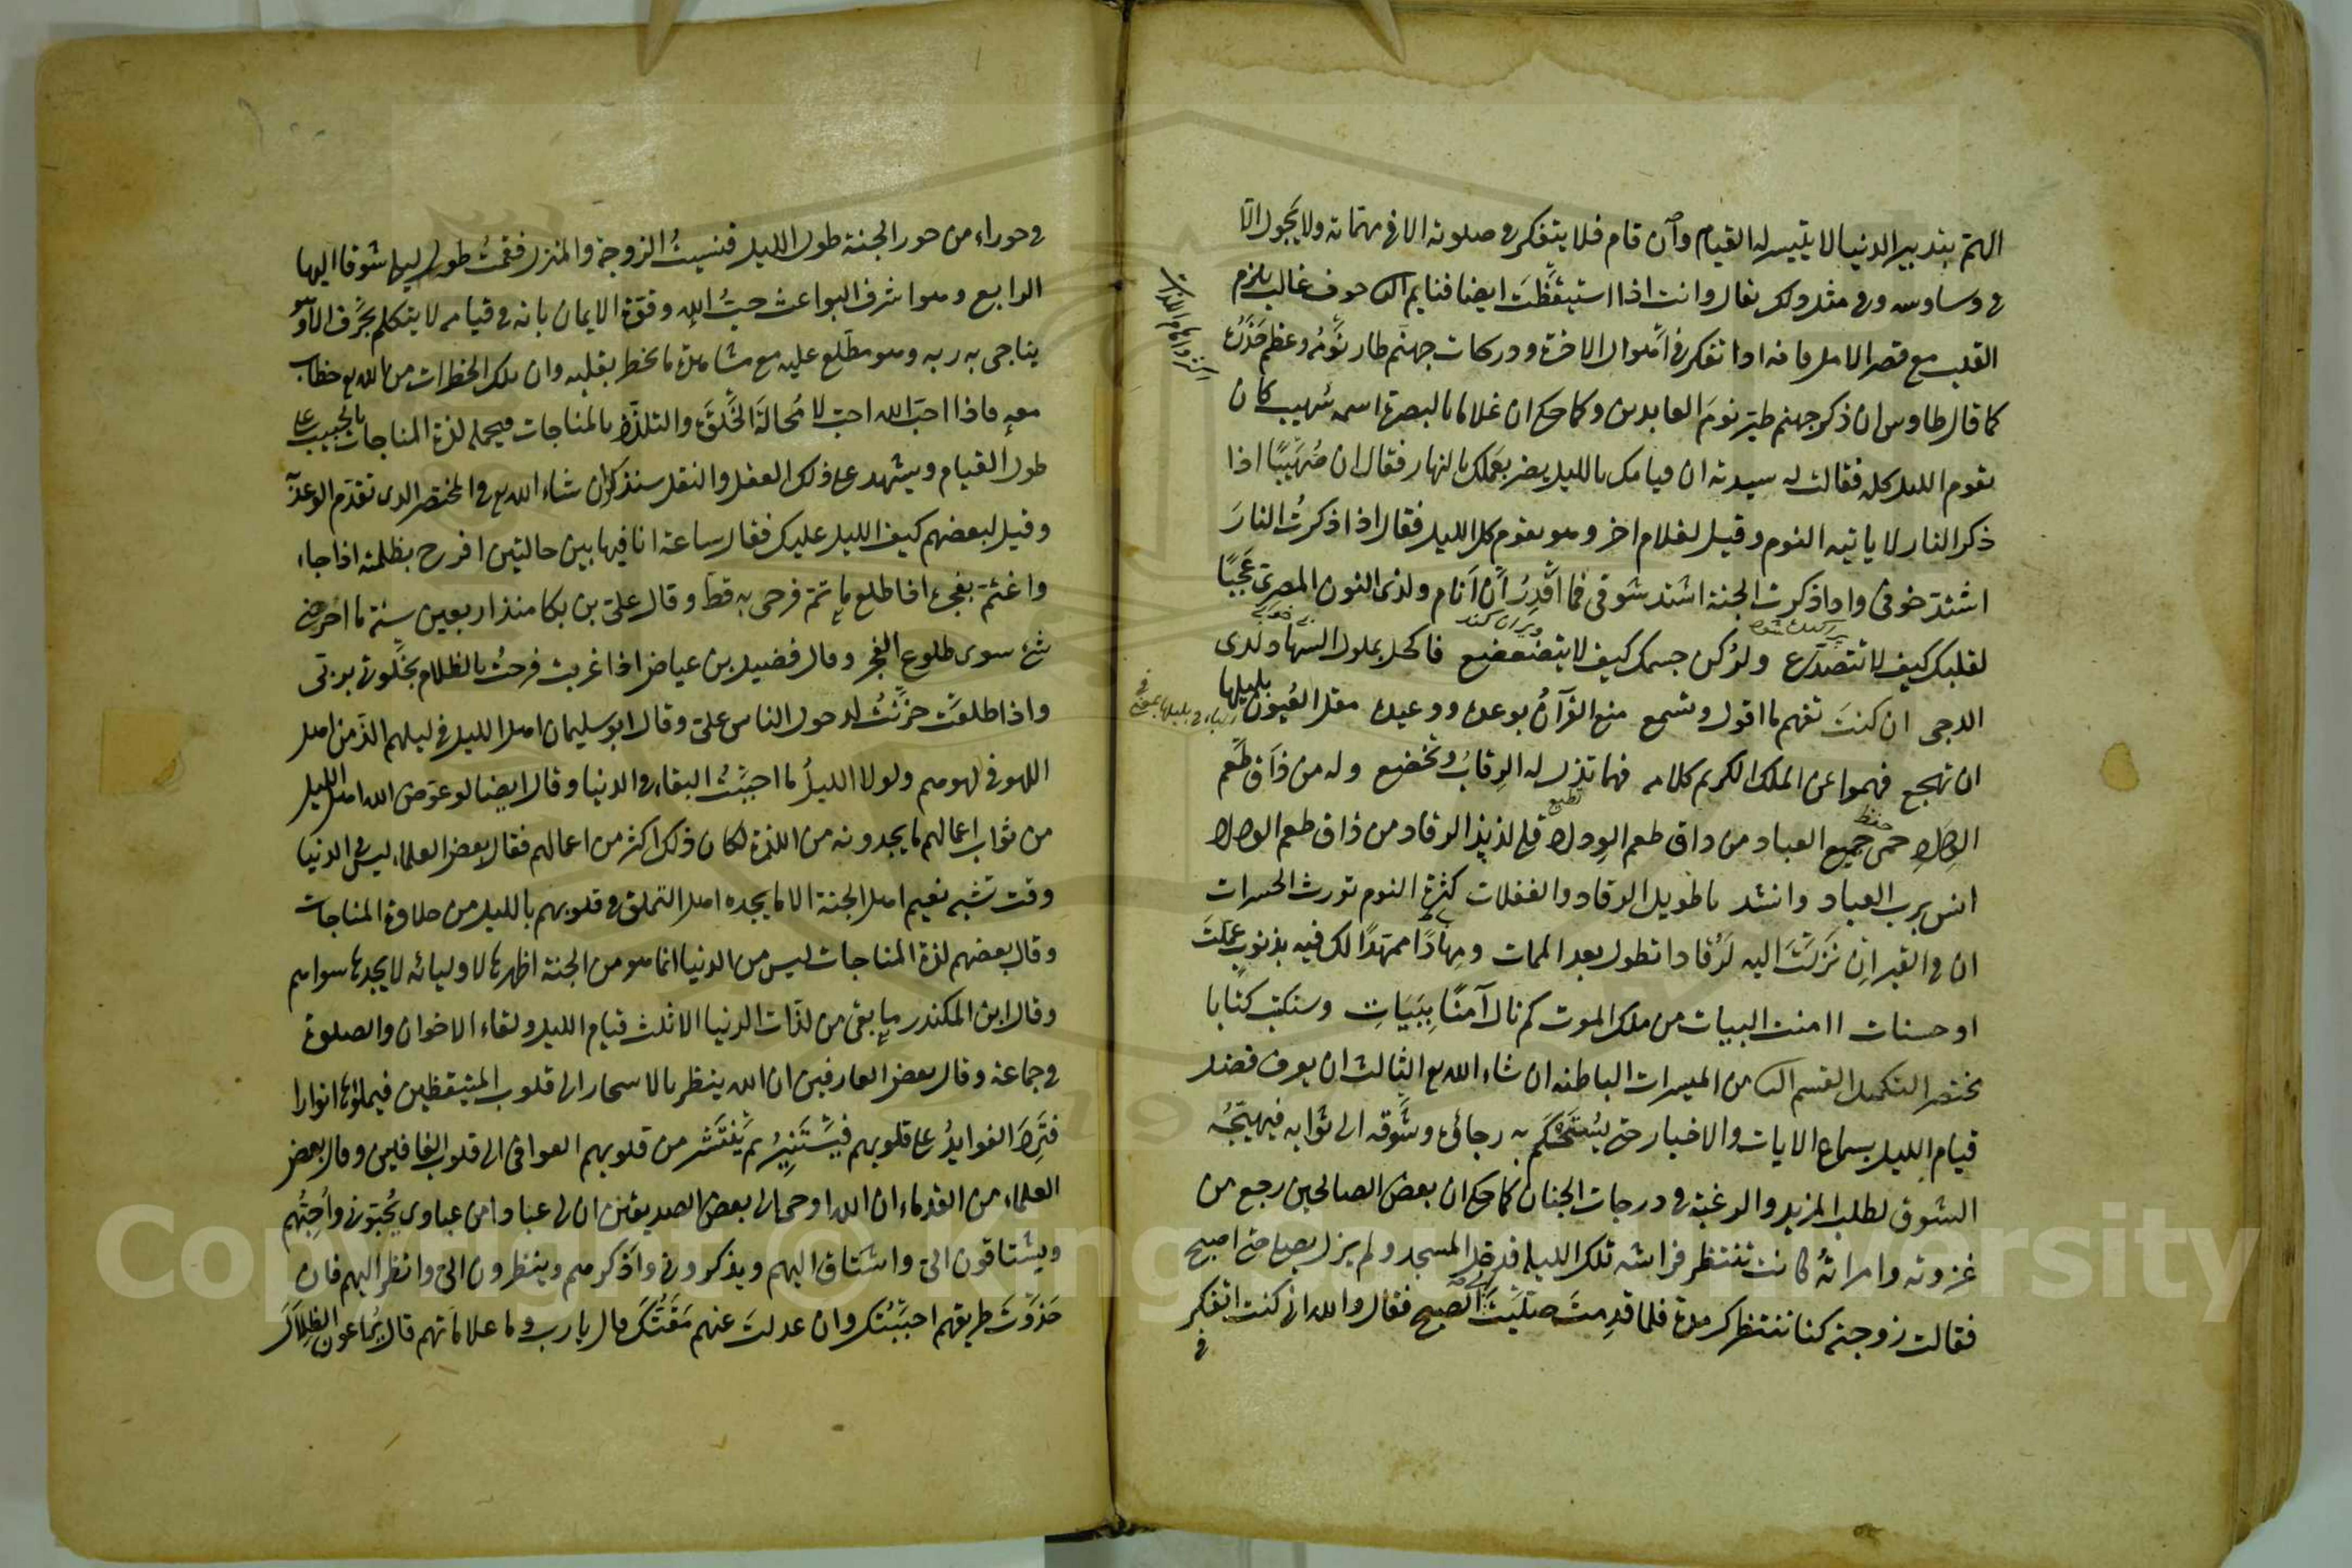 الهم بتدبير الدنيا لا يتيسر له القيام وان قام فلا يتفكر في صلوته الا في مهماته ولا يجول الا
في وساوسه وفي مثل ذلك يقال وانت اذا استيقظت ايضا فنايم الثاني خوف غالب يلزم
القلب مع قصر الامل فانه اذا تفكر في اهوال الاخرة ودركات جهنم طار نومه وعظم حذره
كما قال طاوس ان ذكر جهنم طير نوم العابدين وكما حكي ان غلاما بالبصرة اسمه صهيب كان
يقوم الليل كله فقالت له سيدته ان قيامك بالليل يضر بعملك بالنهار فقال ان صهيبا اذا
ذكر النار لا ياتيه النوم وقيل لغلام اخر وهو يقوم كل الليل فقال اذا ذكرت النار
اشتد خوفي واذا ذكرت الجنة اشتد شوقي فما اقدر ان انام ولذي النون المصري عجبا
لقلبك كيف لا تتصدع ولركن جسمك كيف لا يتضعضع فاكحل بملول السهاد لدى
الدجى ان كنت تفهم ما اقول وتسمع منع القرآن بوعده ووعيده مقل العيون بليلها
ان تهجع فهموا عن الملك الكريم كلامه فهما تذل له الرقاب وتخضع وله من ذاق طعم
الوصال حمى جميع العباد من ذاق طعم الوداد قلى لذيذ الرقاد من ذاق طعم الوصال
انس برب العباد وانشد يا طويل الرقاد والغفلات كثرة النوم تورث الحسرات
ان في القبر ان نزلت اليه لرقادا تطول بعد الممات ومهادا ممهدا لك فيه بذنوب عملت
او حسنات اامنت البيات من ملك الموت كم نال آمنا ببيات وسنكتب كتابا
مختصر القسم من الميسرات الباطنه ان شاء الله تع الثالث ان يعرف فضل
قيام الليل بسماع الايات والاخبار حتى يستحكم به رجائه وشوقه الى ثوابه فيهيجه
الشوق لطلب المزيد والرغبة في درجات الجنان كما حكي ان بعض الصالحين رجع من
غزوته وامراته كانت تنتظر فراشه تلك الليلة فدخل المسجد ولم يزل يصلي حتى اصبح
فقالت زوجته كنا ننتظرك مدة فلما قدمت صليت الى الصبح فقال والله اني كنت اتفكر
في
في حوراء من حور الجنة طول الليل فنسيت الزوجة والمنزل فقمت طول ليلي شوقا اليها
الرابع وهو اشرف البواعث حب الله وقوة الايمان بانه في قيامه لا يتكلم بحرف الا وهو
يناجي به ربه وهو مطلع عليه مع مشاهدة ما يخطر بقلبه وان تلك الخطرات من الله تع خطاب
معه فاذا احب الله احب لا محالة الخلوة والتلذذ بالمناجات فيحمله لذة المناجات بالحبيب على
طول القيام ويشهد على ذلك العقل والنقل سنذكر ان شاء الله تع في المختصر الذي تقدم الوعد
وقيل لبعضهم كيف الليل عليك فقال ساعة انا فيها بين حالتين افرح بظلمته اذا جاء
واغتم بفجره اذا طلع ما تم فرحي به قط وقال علي بن بكا منذ اربعين سنة ما احزنني
شئ سوى طلوع الفجر وقال فضيل بن عياض اذا غربت فرحت بالظلام بخلوتي بربي
واذا طلعت حزنت لدخول الناس علي وقال ابو سليمان اهل الليل في ليلهم الذ من اهل
اللهو في لهوهم ولولا الليل ما احببت البقاء في الدنيا وقال ايضا لو عوض الله اهل الليل
من ثواب اعمالهم ما يجدونه من اللذة لكان ذلك اكثر من اعمالهم فقال بعض العلماء ليس في الدنيا
وقت تشبه نعيم اهل الجنة الا ما يجده اهل التملق في قلوبهم بالليل من حلاوة المناجات
وقال بعضهم لذة المناجات ليس من الدنيا انما هو من الجنة اظهرها لاوليائه لا يجدها سواهم
وقال ابن المكندر ما بقي من لذات الدنيا الا ثلث قيام الليل ولقاء الاخوان والصلوة
في جماعة وقال بعض العارفين ان الله ينظر بالاسحار الى قلوب المتيقظين فيملؤها انوارا
فترد الفوايد على قلوبهم فيستنير ثم ينتشر من قلوبهم العوافي الى قلوب الغافلين وقال بعض
العلماء من القدماء ان الله اوحى الى بعض الصديقين ان لي عبادا من عبادي يحبونني واحبهم
ويشتاقون الي واشتاق اليهم ويذكرونني واذكرهم وينظرون الي وانظر اليهم فان
حذوت طريقهم احببتك وان عدلت عنهم مقتك قال يا رب وما علاماتهم قال يراعون الظلال